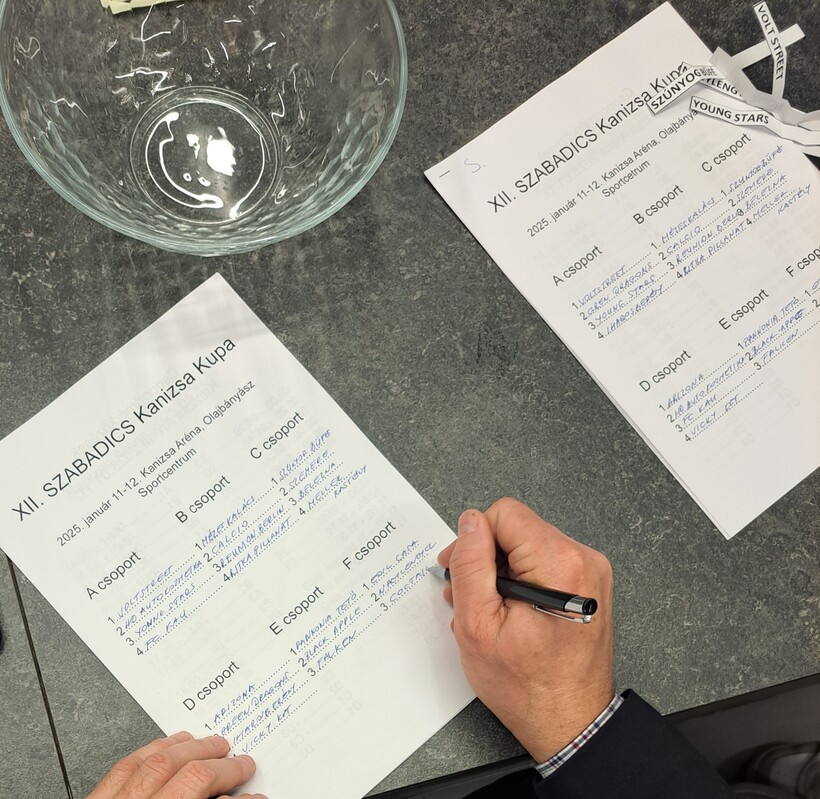 XII. SZABADICS Kanizsa Kupa
2025. január 11-12. Kanizsa Aréna, Olajbányász
Sportcentrum
A csoport
1. VOLTSTREET
2. HD AUTOKOZMETIKA
3. YOUNG STARS
4. FC KAU
B csoport
1. MÉZESKALÁCS
2. CALCIO
3. REUNION BERLIN
4. RITKA PILLANAT
C csoport
1. SZÚNYOG BÜFÉ
2. SZEMERE
3. BELEZNA
4. MELLER
KASTÉLY
D csoport
1. ARIZONA
GREEN DRAGONS
IHAROSBERÉNY
VICKY KFT
E csoport
1. PANNONIA TETŐ
2. BLACK APPLE
3. FALKEN
F csoport
1.
2. NAGYLENGYEL
3.
S.
XII. SZABADICS Kanizsa Kupa
2025. január 11-12. Kanizsa Aréna, Olajbánya
Sportcetrum
A csoport
1. VOLTSTREET
2. GREEN DRAGONS
3. YOUNG STARS
4. IHAROSBERÉNY
B csoport
1. MÉZESKALÁCS
2. CALCIO
3. REUNION BERLIN
4. RITKA PILLANAT
C csoport
1. SZÚNYOG BÜFÉ
2. SZEMERE
3. BELEZNA
4. MELLER
KASTÉLY
D csoport
1. ARIZONA
2. HD AUTOKOZMETIKA
3. FC KAU
4. VICKY KFT
E csoport
1. PANNONIA TETŐ
2. BLACK APPLE
3. FALKEN
F csopo
1.
2.
VOLT STREET
SZÚNYOG BÜFÉ
YLENG
YOUNG STARS